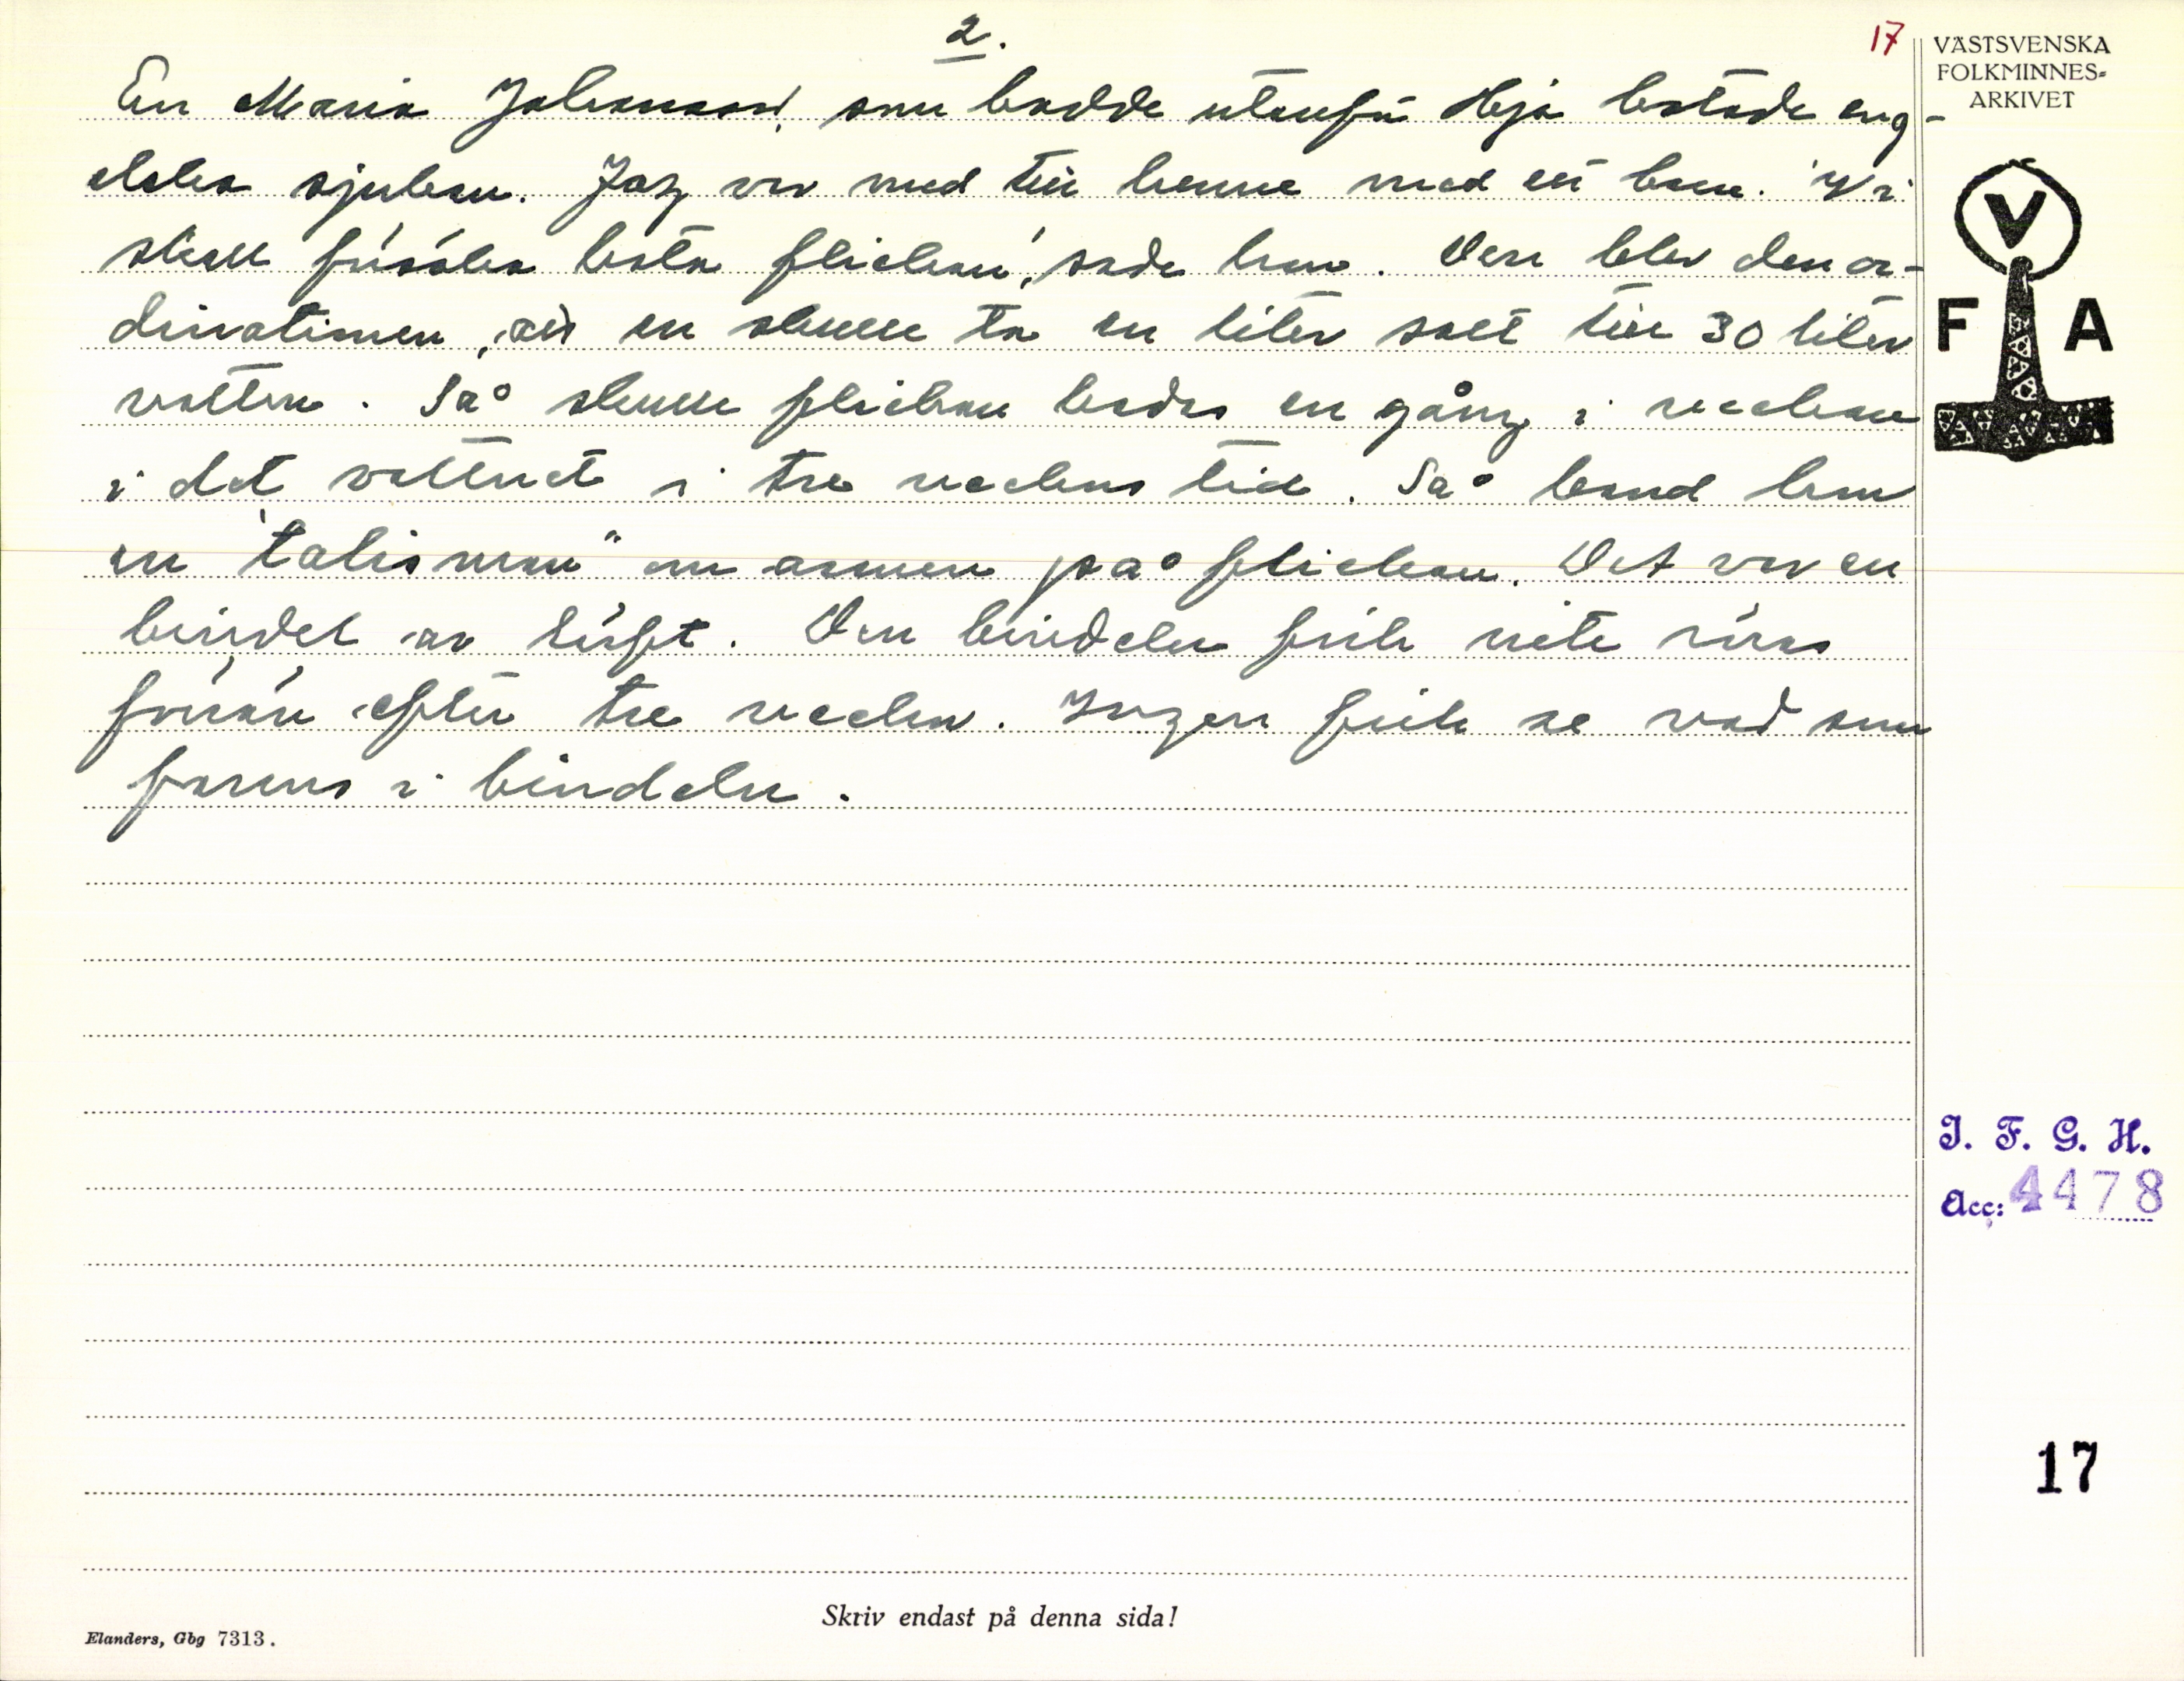 2.
17
En Maria Johansson, som bodde utanför Hjo botade eng-
elska sjukan. Jag var med till henne med ett barn. "Vi
skall försöka bota flickan", sade hon. Den blev den or-
dinationen, att en skulle ta en liter salt till 30 liter
vatten. Så skulle flickan badas en gång i veckan
i det vattnet i tre veckors tid. Så band hon
en "talisman" om armen på flickan. Det var en
bindel av lärft. Den bindeln fick inte röras
förrän efter tre veckor. Ingen fick se vad som
fanns i bindeln.
VÄSTSVENSKA
FOLKMINNES-
ARKIVET
V
F A
I. F. G. H.
Acc: 4478
17
Skriv endast på denna sida!
Elanders, Gbg 7313.